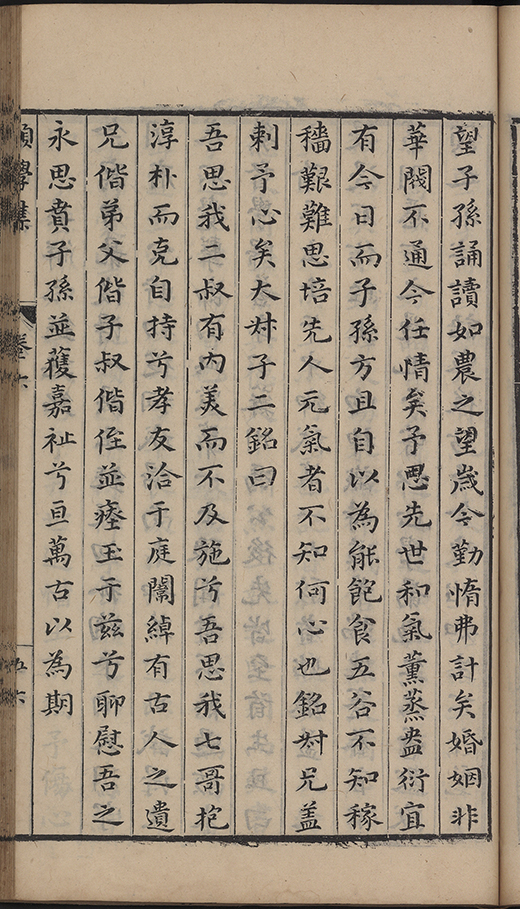 望子孫誦讀如農之望歲今勤惰弗計矣婚姻非
華閥不通今任情矣予思先世和氣薰蒸盎衍宜
有今日而子孫方且自以為能飽食五谷不知稼
穡艱難思培先人元氣者不知何心也銘尌兄盖
刺予心矣大尌子二銘曰
吾思我二叔有内美而不及施兮吾思我七哥抱
淳朴而克自持兮孝友洽于庭闈綽有古人之遺
兄偕弟父偕子叔偕侄並瘞玉于兹兮聊慰吾之
永思賁子孫並獲嘉祉兮亘萬古以為期
學集
卷六
五六